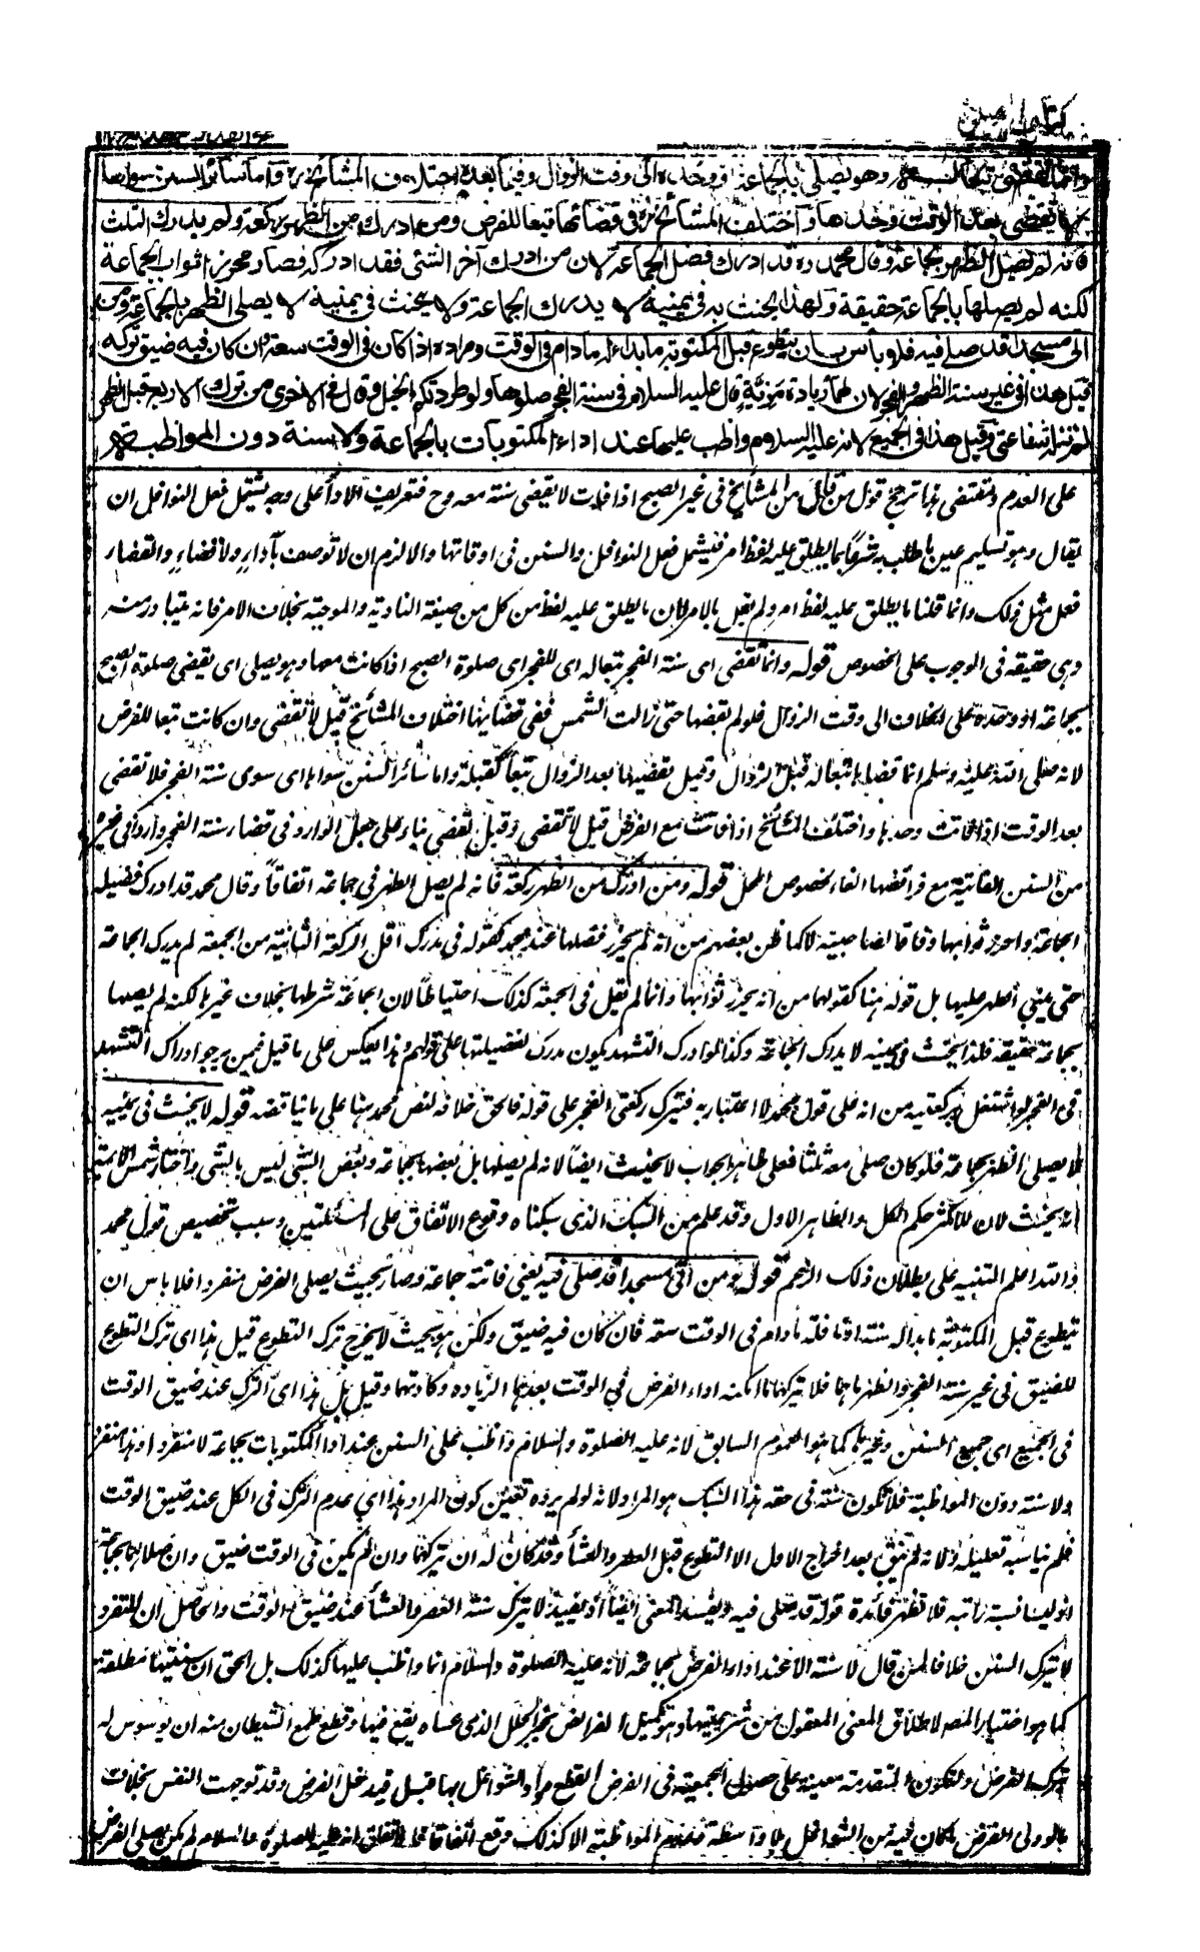 كتاب الصلوة
وانما تقضى تبعا له وهو يصلى بالجماعة او وحده الى وقت الزوال وفيما بعده اختلاف المشائخ رح واما سائر السنن سواها
لا تقضى بعد الوقت وحدها واختلف المشائخ رح فى قضائها تبعا للفرض ومن ادرك من الظهر ركعة ولم يدرك الثلث
فانه لم يصل الظهر بجماعة وقال محمد ره قد ادرك فضل الجماعة لان من ادرك آخر الشئ فقد ادركه فصار محرزا ثواب الجماعة
لكنه لم يصلها بالجماعة حقيقة ولهذا يحنث به فى يمينه لا يدرك الجماعة ولا يحنث فى يمينه لا يصلى الظهر بالجماعة ومن
اتى مسجدا قد صلى فيه فلا بأس بان يتطوع قبل المكتوبة ما بدا له ما دام فى الوقت ومراده اذا كان فى الوقت سعة وان كان فيه ضيق تركه
قيل هذا فى غير سنة الظهر والفجر لان لهما زيادة مزية قال عليه السلام فى سنة الفجر صلوها ولو طردتكم الخيل وقال فى الاخرى من ترك الاربع قبل الظهر
لم تنله شفاعتى وقيل هذا فى الجميع لانه عليه السلام واظب عليها عند اداء المكتوبات بالجماعة ولا سنة دون المواظبة
على العدم ومقتضى هذا ترجيح قول من قال من المشايخ فى غير الصبح اذا فاتت لا يقضى سنة معه وح فتعريف الاداء على وجه يشتمل فعل النوافل ان
يقال وهو تسليم عين ما طلب به شرعا بما يطلق عليه لفظ امر فيشمل فعل النوافل والسنن فى اوقاتها والا لزم ان لا توصف بآداء ولا قضاء والقضاء
فعل مثل ذلك وانما قلنا ما يطلق عليه لفظ امر ولم نقل بالامر لان ما يطلق عليه لفظ من كل من صيغة النادبة والموجبة بخلاف الامر فانه يتبادر منه
وهى حقيقة فى الوجوب على الخصوص قوله وانما تقضى اى سنة الفجر تبعا له اى للفجر اى صلوة الصبح اذا كانت معها وهو يصلى اى يقضى صلوة الصبح
بجماعة او وحده على الخلاف الى وقت الزوال فلو لم يقضها حتى زالت الشمس ففى قضائها اختلاف المشائخ قيل لا تقضى وان كانت تبعا للفرض
لانه صلى الله عليه وسلم انما قضاها تبعا له قبل الزوال وقيل يقضيها بعد الزوال تبعا كقبله واما سائر السنن سواها اى سوى سنة الفجر فلا تقضى
بعد الوقت اذا فاتت وحدها واختلف المشائخ اذا فاتت مع الفرض قيل لا تقضى وقيل تقضى بناء على جعل الوارد فى قضاء سنة الفجر واردا فى غيرها
من السنن الفائتة مع فرائضها الغاء لخصوص المحل قوله ومن ادرك من الظهر ركعة فانه لم يصل الظهر فى جماعة اتفاقا وقال محمد قد ادرك فضيلة
الجماعة واحرز ثوابها وفاقا لصاحبيه لا كما ظن بعضهم من انه لم يحرز فضلها عند محمد كقوله فى مدرك اقل الركعة الثانية من الجمعة لم يدرك الجماعة
حتى يبنى الظهر عليها بل قوله هنا كقولهما من انه يحرز ثوابها وانما لم يقل فى الجمعة كذلك احتياطا لان الجماعة شرطها بخلاف غيرها لكنه لم يصلها
بجماعة حقيقة فلذا يحنث فى يمينه لا يدرك الجماعة وكذا لو ادرك التشهد يكون مدركا لفضيلتها على قولهم وهذا يعكس على ما قيل فيمن يرجو ادراك التشهد
فى الفجر لو اشتغل بركعتيه من انه على قول محمد لا اعتبار به فيترك ركعتى الفجر على قوله فالحق خلافه لنص محمد هنا على ما يناقضه قوله لا يحنث فى يمينه
لا يصلى الظهر بجماعة فلو كان صلى معه ثلثا فعلى ظاهر الجواب لا يحنث ايضا لانه لم يصلها بل بعضها بجماعة وبعض الشئ ليس بالشئ واختار شمس الائمة
انه يحنث لان للاكثر حكم الكل والظاهر الاول وقد علم من السبك الذى سبكناه وقوع الاتفاق على المسئلتين وسبب تخصيص قول محمد
والله اعلم التنبيه على بطلان ذلك الزعم قوله ومن اتى مسجدا قد صلى فيه يعنى فاتته جماعة وصار بحيث يصلى الفرض منفردا فلا بأس ان
يتطوع قبل المكتوبة ما بدا له سنة او نافلة ما دام فى الوقت سعة فان كان فيه ضيق ولكن هو بحيث لا يخرج ترك التطوع قيل هذا اى ترك التطوع
للضيق فى غير سنة الفجر والظهر اما هما فلا يتركهما ما امكنه اداء الفرض فى الوقت بعدهما لزيادة وكادتهما وقيل بل هذا اى الترك عند ضيق الوقت
فى الجميع اى جميع السنن وغيرها كما هو العموم السابق لانه عليه الصلوة والسلام واظب على السنن عند اداء المكتوبات بجماعة لا منفردا وهذا منفرد
ولا سنة دون المواظبة فلا تكون سنة فى حقه هذا السبك هو المراد لانه لو لم يرده تعين كون المراد هذا اى عدم الترك فى الكل عند ضيق الوقت
فلم يناسبه تعليله ولانه لم يبق بعد اخراج الاول الا التطوع قبل العصر والعشاء وقد كان له ان يتركهما وان لم يكن فى الوقت ضيق وان صلاهما بجماعة
اذ ليسا بسنة راتبة فلا تظهر فائدة قوله قد صلى فيه ويفسد المعنى ايضا اذ يفيد لا يترك سنة العصر والعشاء عند ضيق الوقت والحاصل ان المنفرد
لا يترك السنن خلافا لمن قال لا سنة الا عند اداء الفرض بجماعة لانه عليه الصلوة والسلام انما واظب عليها كذلك بل الحق ان سنيتها مطلقة
كما هو اختيار المصنف لاطلاق المعنى المعقول من شرعيتها وهو تكميل الفرائض بجبر الخلل الذى عساه يقع فيها وقطع طمع الشيطان منه ان يوسوس له
بترك الفرض ولتكون المتقدمة معينة على حصول الجمعية فى الفرض لقطع مواد الشواغل بها قبل فيدخل الفرض وقد توجهت النفس بخلاف
ما لو ولى الفرض ما كان فيه من الشواغل بلا واسطة فعدم المواظبة الا كذلك وقع اتفاقا لاتفاق انه عليه الصلوة والسلام لم يكن يصلى الفرض